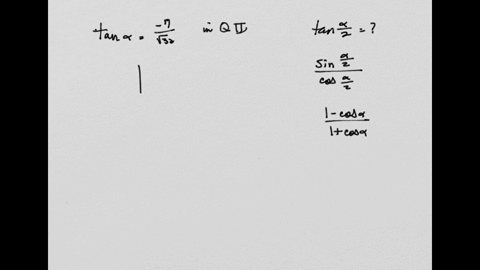 tan α = -7/√32 in Q II
tan α/2 = ?
sin α/2 / cos α/2
1 - cos α / 1 + cos α